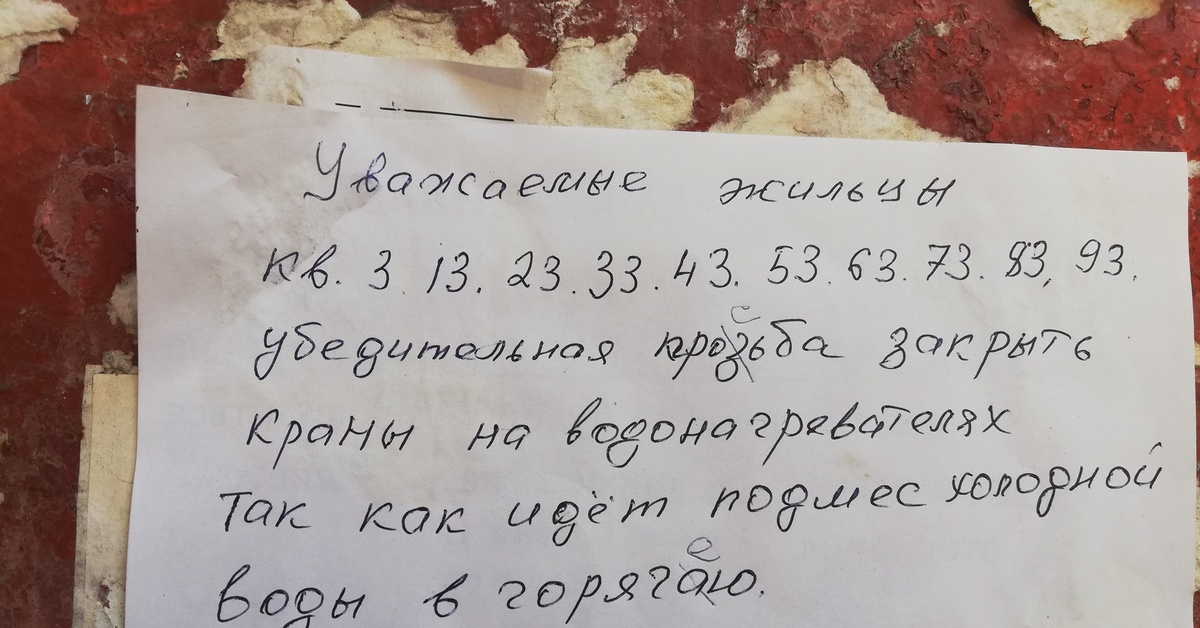 Уважаемые жильцы
кв. 3. 13. 23. 33. 43. 53. 63. 73. 83, 93.
убедительная прозсьба закрыть
краны на водонагревателях
так как идёт подмес холодной
воды в горячаею.